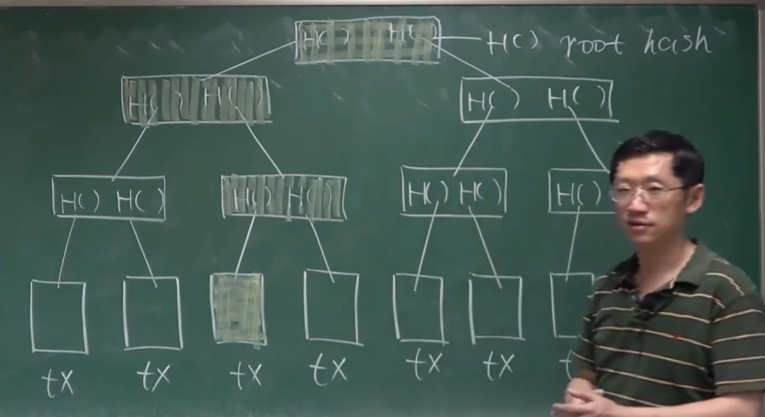 H( ) H( ) H( ) root hash
H( ) H( ) H( ) H( )
H( ) H( ) H( ) H( ) H( ) H( ) H( )
tx tx tx tx tx tx t